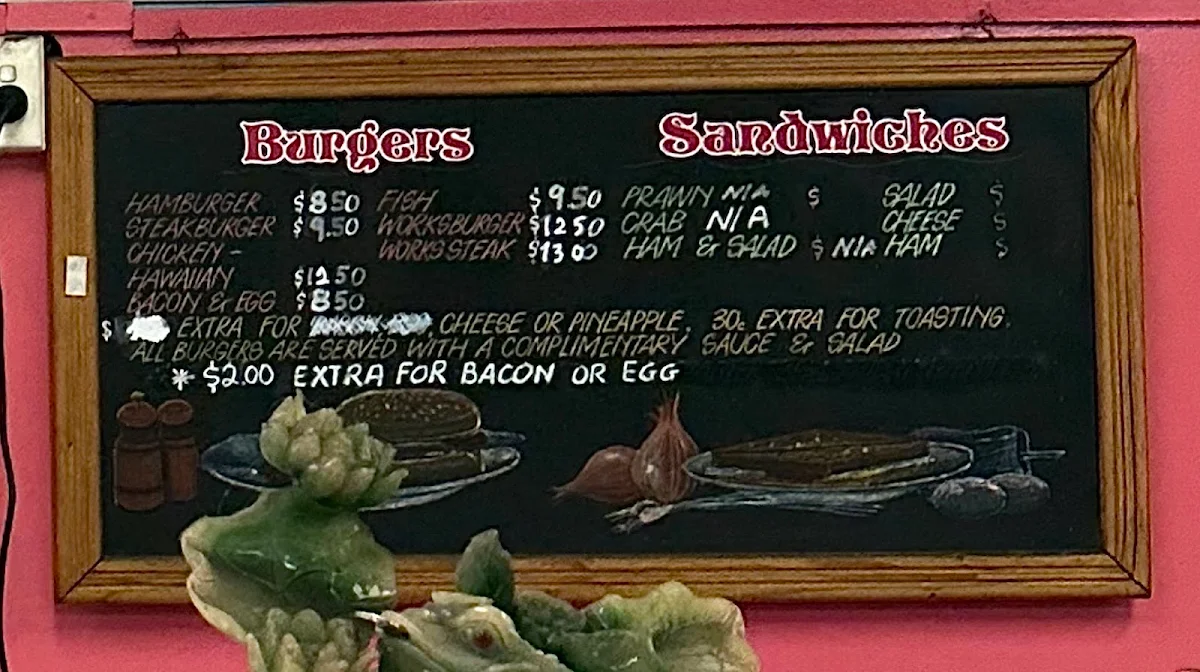 Burgers
HAMBURGER $8.50
STEAKBURGER $9.50
CHICKEN -
HAWAIIAN $12.50
BACON & EGG $8.50
FISH $9.50
WORKSBURGER $12.50
WORKS STEAK $13.00
Sandwiches
PRAWN N/A $
CRAB N/A
HAM & SALAD $ N/A
SALAD $
CHEESE $
HAM $
$ EXTRA FOR CHEESE OR PINEAPPLE. 30c EXTRA FOR TOASTING.
ALL BURGERS ARE SERVED WITH A COMPLIMENTARY SAUCE & SALAD
* $2.00 EXTRA FOR BACON OR EGG